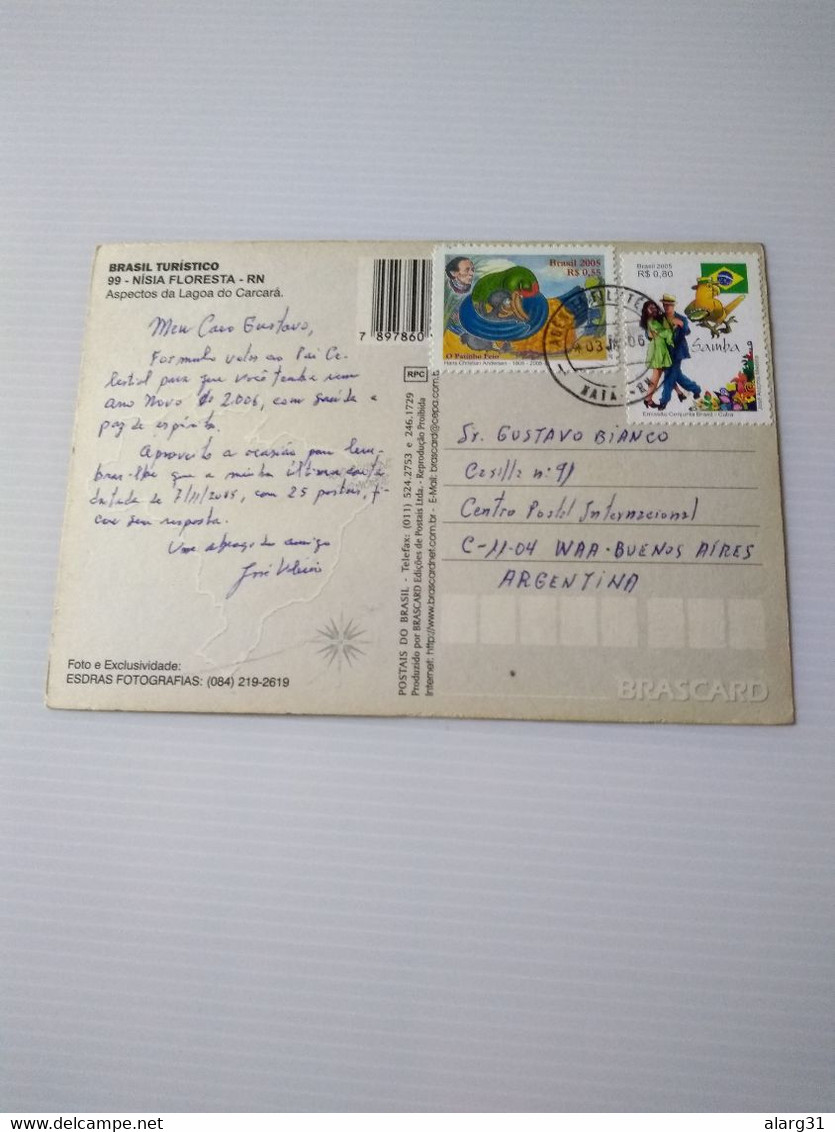 BRASIL TURÍSTICO
99 - NÍSIA FLORESTA - RN
Aspectos da Lagoa do Carcará.
Meu Caro Gustavo,
Formulo votos ao Pai Ce-
lestial para que você tenha um
ano Novo de 2006, com saúde e
paz de espírito.
Aproveito a ocasião para lem-
brar-lhe que a minha última carta
datada de 7/11/2005, com 25 postais, fi-
cou sem resposta.
Um abraço do amigo
José
Foto e Exclusividade:
ESDRAS FOTOGRAFIAS: (084) 219-2619
7 897860
RPC
POSTAIS DO BRASIL - Telefax: (011) 524.2753 e 246.1729
Produzido por BRASCARD Edições de Postais Ltda. - Reprodução Proibida
Internet: http://www.brascardnet.com.br - E-Mail: brascard@cepa.com.b
Brasil 2005
R$ 0,55
O Patinho Feio
Hans Christian Andersen - 1805 - 2005
Brasil 2005
R$ 0,80
Samba
Emissão Conjunta Brasil - Cuba
03 06
RN
Sr. GUSTAVO BIANCO
Casilla n: 91
Centro Postal Internacional
C-11-04 WAA-BUENOS AIRES
ARGENTINA
BRASCARD
delcampe.net
alarg31